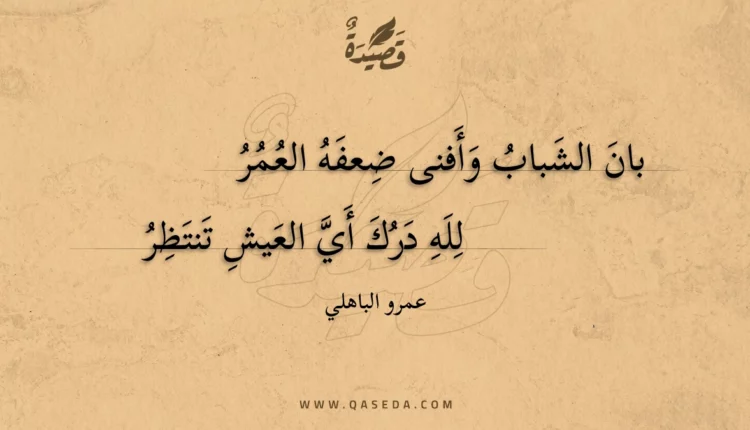 قَصِيْدَةٌ
بانَ الشَبابُ وَأَفنى ضِعفَهُ العُمُرُ
لِلَهِ دَرُكَ أَيَّ العَيشِ تَنتَظِرُ
عمرو الباهلي
WWW.QASEDA.COM